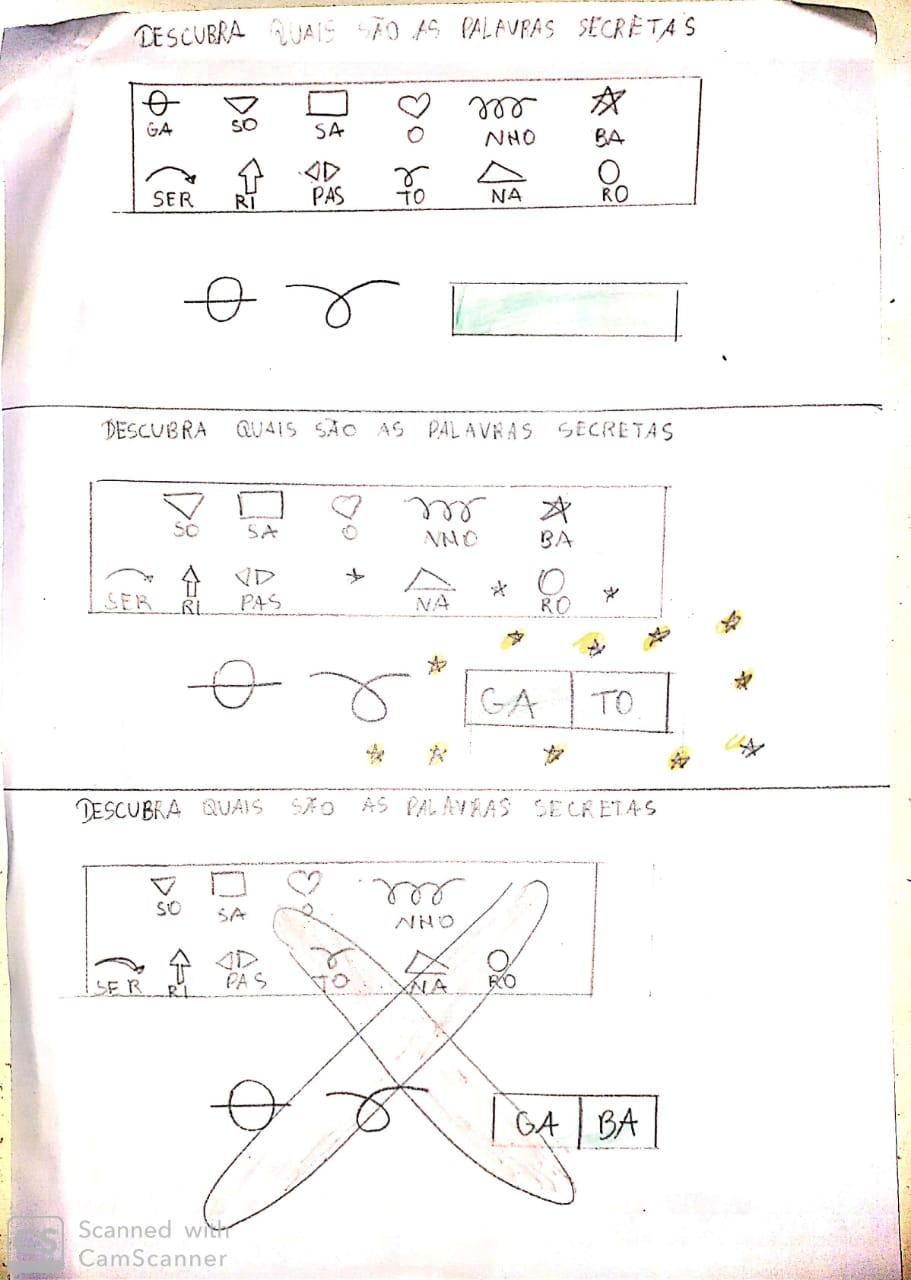 DESCUBRA QUAIS SÃO AS PALAVRAS SECRETAS
GA SO SA O NHO BA
SER RI PAS TO NA RO
DESCUBRA QUAIS SÃO AS PALAVRAS SECRETAS
SO SA O NHO BA
SER RI PAS NA RO
GA TO
DESCUBRA QUAIS SÃO AS PALAVRAS SECRETAS
SO SA O NHO
SER RI PAS TO NA RO
GA BA
CS
Scanned with
CamScanner